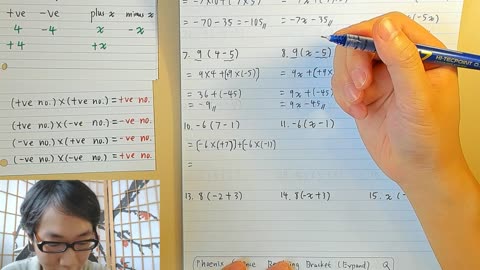 +ve -ve plus x minus x
4 -4 x -x
+4 +x
(+ve no.) × (+ve no.) = +ve no.
(+ve no.) × (-ve no.) = -ve no.
(-ve no.) × (+ve no.) = -ve no.
(-ve no.) × (-ve no.) = +ve no.
= -70 - 35 = -105
= -7x - 35
(-5x)
7. 9(4-5)
= 9×4 + [+9×(-5)]
= 36 + (-45)
= -9
8. 9(x-5)
= 9x + [+9×
= 9x + (-45)
= 9x - 45
10. -6(7-1)
= [-6×(+7)] + [-6×(-1)]
=
11. -6(x-1)
13. 8(-2+3)
14. 8(-x+1)
15. x(-
Phoenix Bracket (Expand) Q
HI-TECPOINT